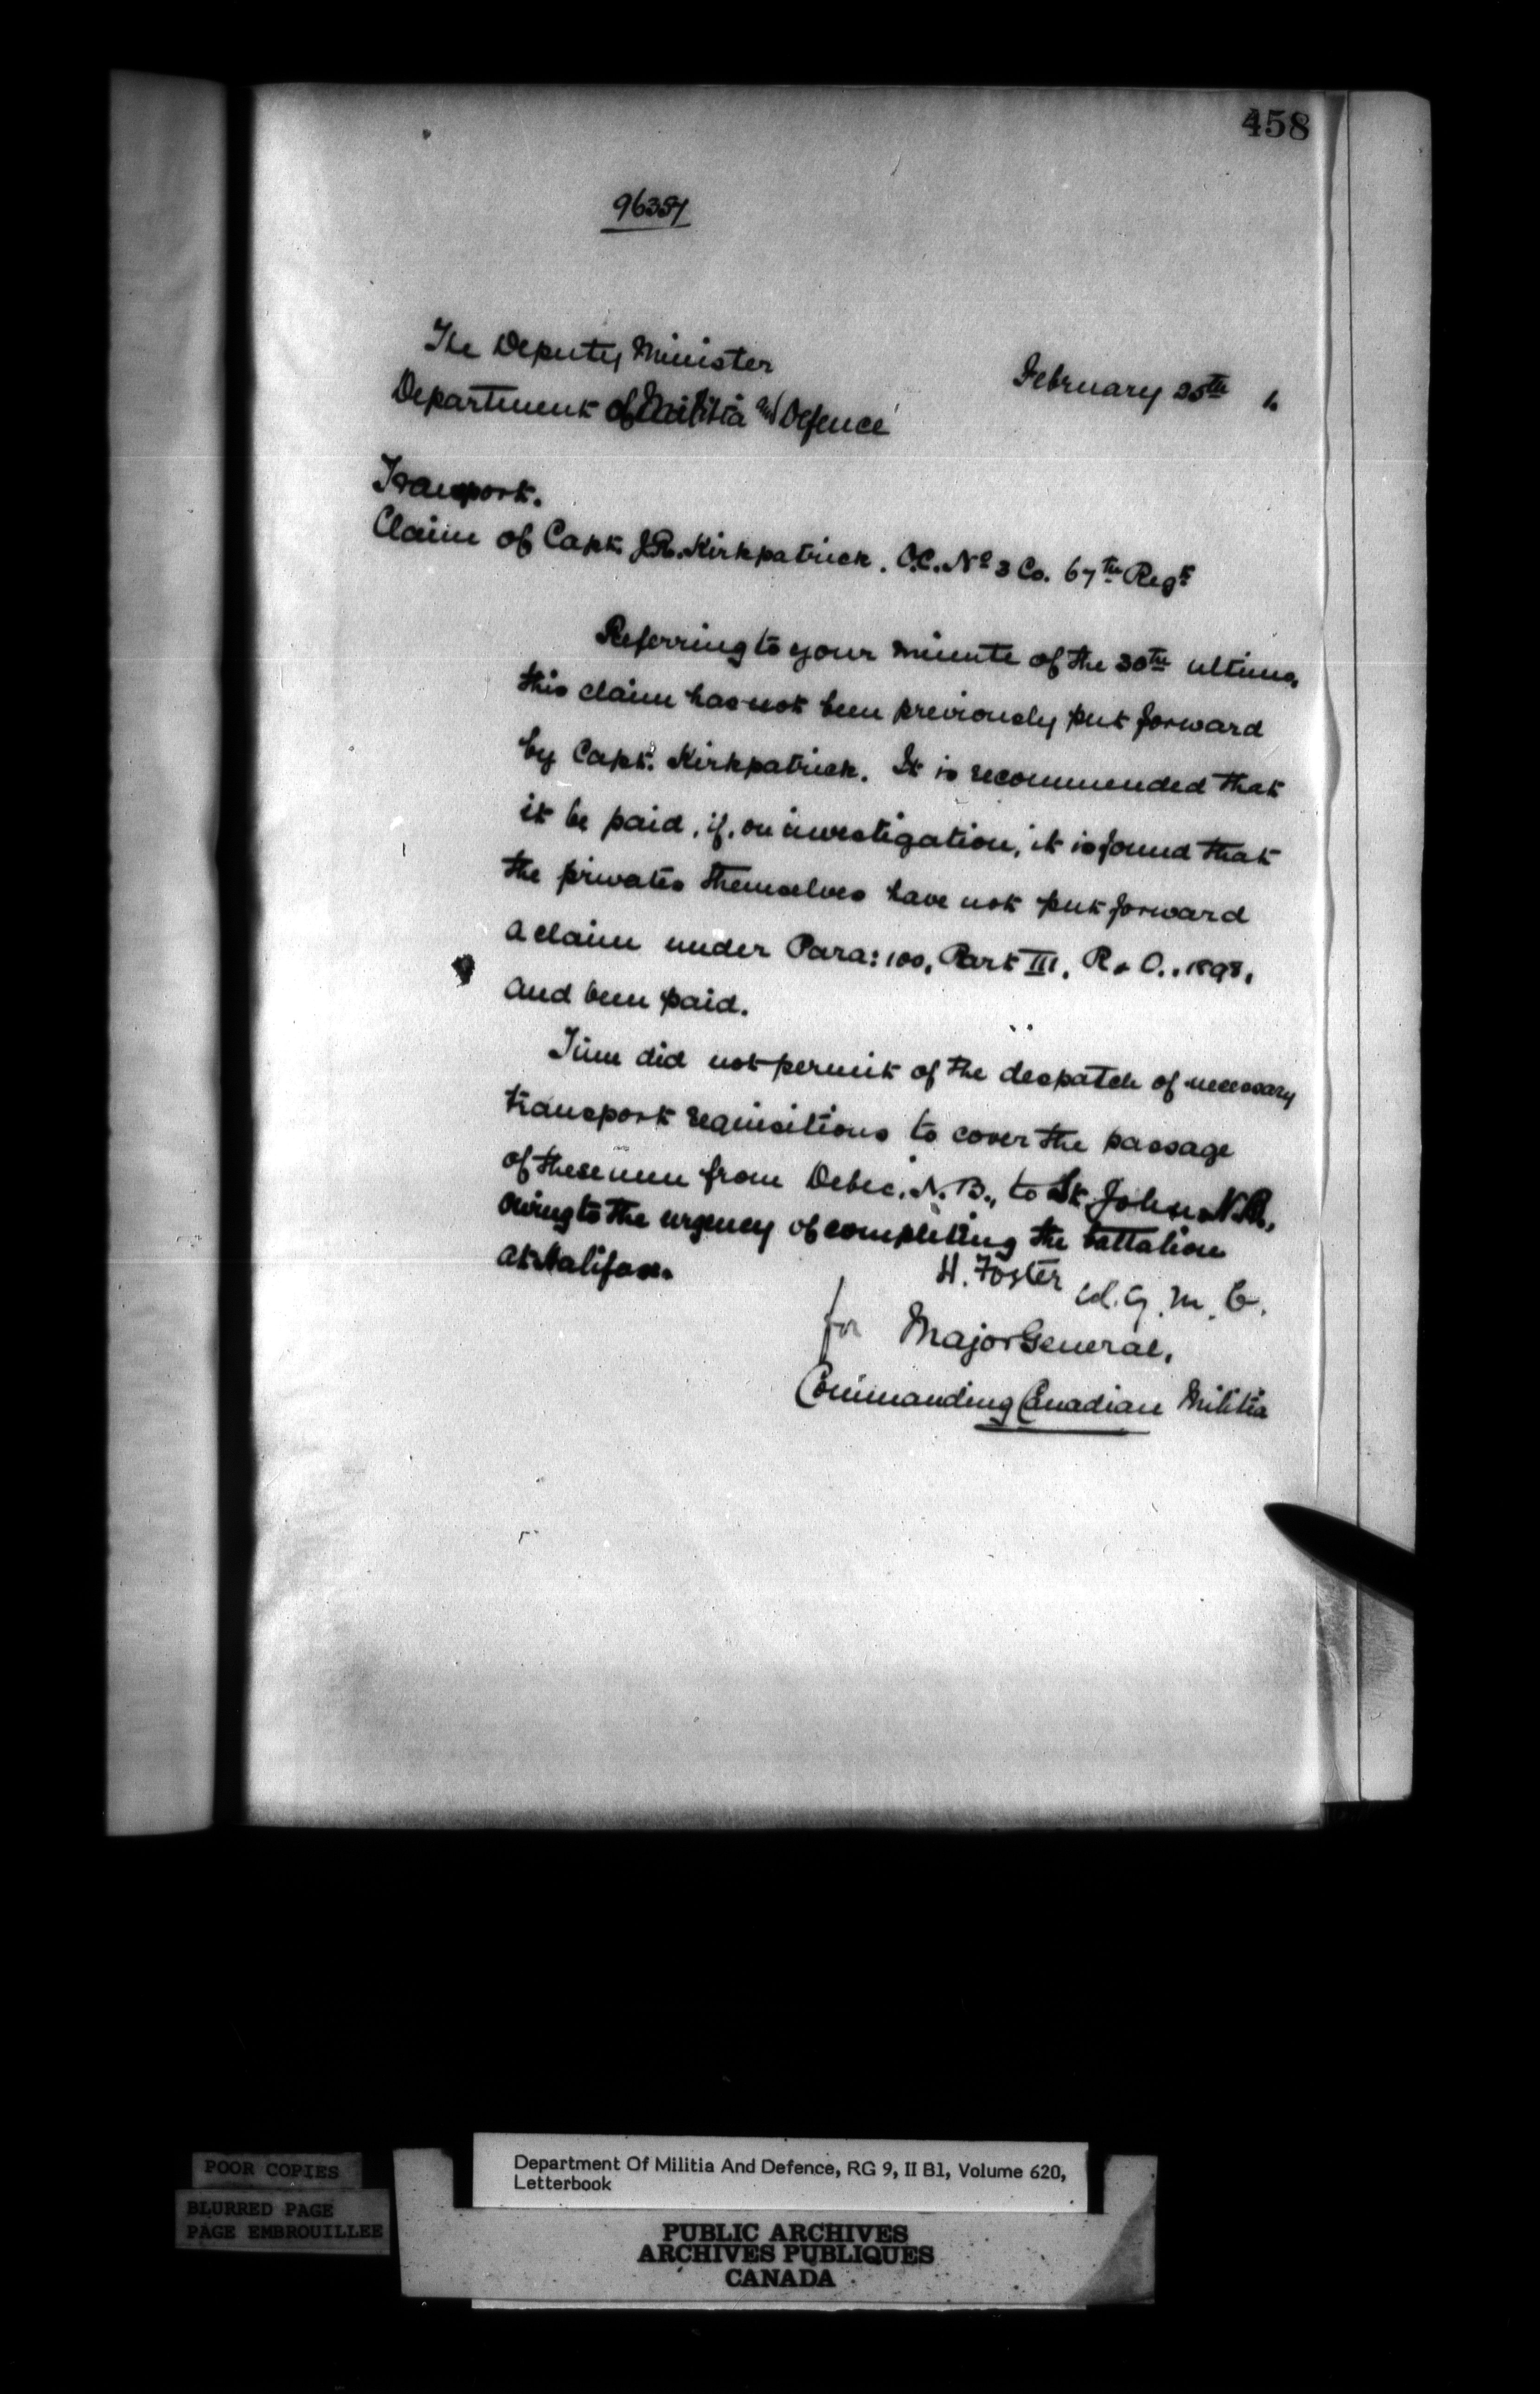 458
96351
The Deputy Minister
February 25th 1.
Department of Militia and Defence
Transport.
Claim of Capt. J.R. Kirkpatrick. O.C. No 3 Co. 67th Regt
Referring to your minute of the 30th ultimo,
this claim has not been previously put forward
by Capt. Kirkpatrick. It is recommended that
it be paid, if, on investigation, it is found that
the privates themselves have not put forward
a claim under Para: 100, Part III, R. & O., 1898,
and been paid.
Time did not permit of the despatch of necessary
transport requisitions to cover the passage
of these men from Debec, N.B., to St. John N.B.,
owing to the urgency of completing the battalion
at Halifax.
H. Foster Col. Q. M. G.
for Major General,
Commanding Canadian Militia
Department Of Militia And Defence, RG 9, II B1, Volume 620,
Letterbook
POOR COPIES
BLURRED PAGE
PAGE EMBROUILLEE
PUBLIC ARCHIVES
ARCHIVES PUBLIQUES
CANADA